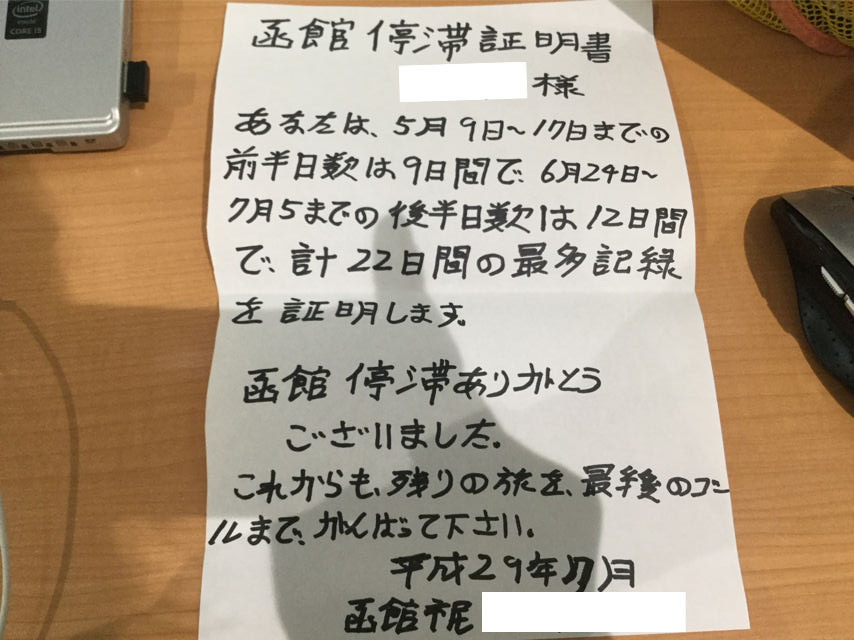 intel
inside
CORE i5
函館停滞証明書
様
あなたは、5月9日～17日までの
前半日数は9日間で、6月24日～
7月5までの後半日数は12日間
で、計22日間の最多記録
を証明します。
函館停滞ありがとう
ございました。
これからも、残りの旅を、最後のゴー
ルまで、がんばって下さい。
平成29年7月
函館